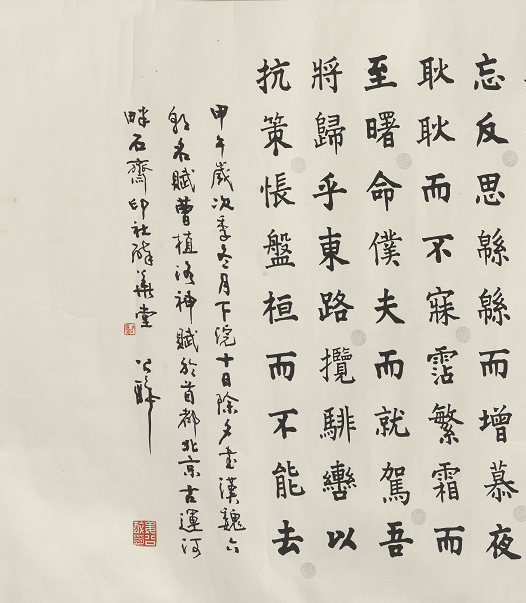 忘反思緜緜而增慕夜
耿耿而不寐霑繁霜而
至曙命僕夫而就駕吾
將歸乎東路攬騑轡以
抗策悵盤桓而不能去
甲午歲次季冬月下浣十日除夕書漢魏六
朝名賦曹植洛神賦於首都北京古運河
畔石齋印社